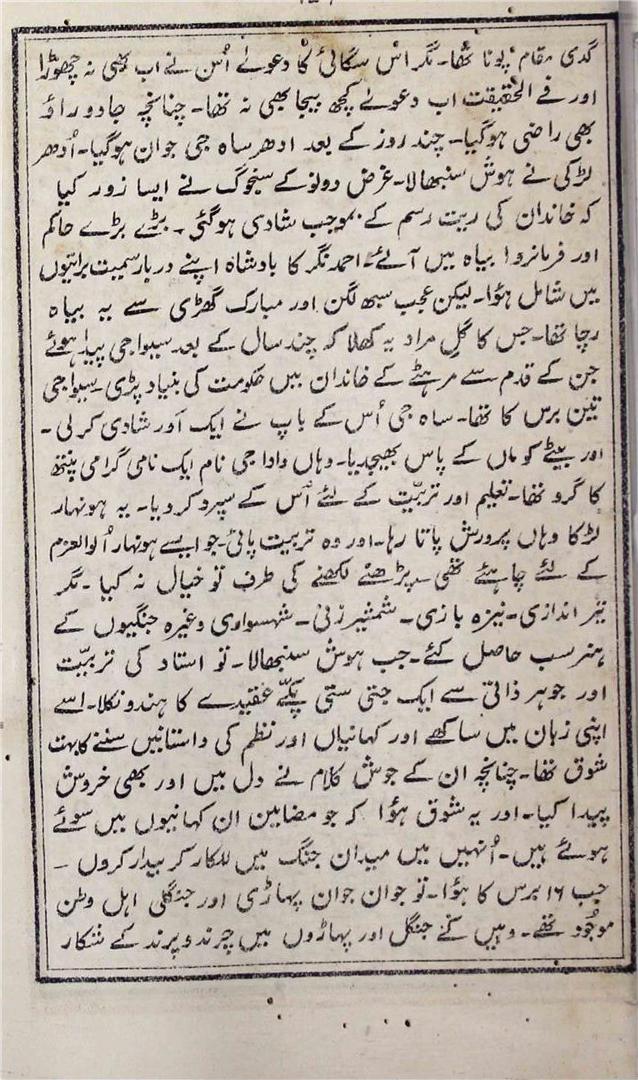 گدی مقام پونا تھا۔ مگر اس سگائی کا دعوےٰ اُس نے اب بھی نہ چھوڑا
اور فے الحقیقت اب دعوےٰ کچھ بیجا بھی نہ تھا۔ چنانچہ جادو راؤ
بھی راضی ہوگیا۔ چند روز کے بعد ادھر ساہ جی جوان ہوگیا۔ اُدھر
لڑکی نے ہوش سنبھالا۔ غرض دونو کے سنجوگ نے ایسا زور کیا
کہ خاندان کی ریت رسم کے بموجب شادی ہوگئی۔ بڑے بڑے حاکم
اور فرمانروا بیاہ میں آئے۔ احمد نگر کا بادشاہ اپنے دربار سمیت براتیوں
میں شامل ہؤا۔ لیکن عجب سبھ لگن اور مبارک گھڑی سے یہ بیاہ
رچا تھا۔ جس کا گلِ مراد یہ کھلا کہ چند سال کے بعد سیواجی پیدا ہوئے
جن کے قدم سے مرہٹے کے خاندان میں حکومت کی بنیاد پڑی۔ سیواجی
تین برس کا تھا۔ ساہ جی اُس کے باپ نے ایک اَور شادی کرلی۔
اور بیٹے کو ماں کے پاس بھیجدیا۔ وہاں واداجی نام ایک نامی گرامی پنتھ
کا گرو تھا۔ تعلیم اور تربیّت کے لئے اُس کے سپرد کر دیا۔ یہ ہونہار
لڑکا وہاں پرورش پاتا رہا۔ اور وہ تربیت پائی۔ جو ایسے ہونہار اُلوالعزم
کے لئے چاہئے تھی۔ پڑھنے لکھنے کی طرف تو خیال نہ کیا۔ مگر
تیر اندازی۔ نیزہ بازی۔ شمشیر زنی۔ شہسواری وغیرہ جنگیوں کے
ہنر سب حاصل کئے۔ جب ہوش سنبھالا۔ تو استاد کی تربیّت
اور جوہر ذاتی سے ایک جتی ستی پکّے عقیدے کا ہندو نکلا۔ اسے
اپنی زبان میں ساکھے اور کہانیاں اور نظم کی داستانیں سننے کا بہت
شوق تھا۔ چنانچہ ان کے جوش کلام نے دل میں اور بھی خروش
پیدا کیا۔ اور یہ شوق ہؤا کہ جو مضامین ان کہانیوں میں سوئے
ہوئے ہیں۔ اُنہیں میں میدان جنگ میں للکار کر بیدار کروں۔
جب ١٦ برس کا ہؤا۔ تو جوان جوان پہاڑی اور جنگلی اہل وطن
موجُود تھے۔ وہیں کے جنگل اور پہاڑوں میں چرند و پرند کے شکار